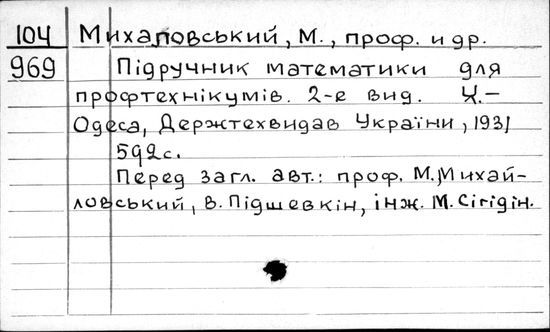 104 Михаловський, М., проф. и др.
969 Підручник математики для
профтехнікумів. 2-е вид. Х.-
Одеса, Держтехвидав України, 1931
592с.
Перед загл. авт.: проф. М.Михай-
ловський, В. Підшевкін, інж. М. Сігідін.